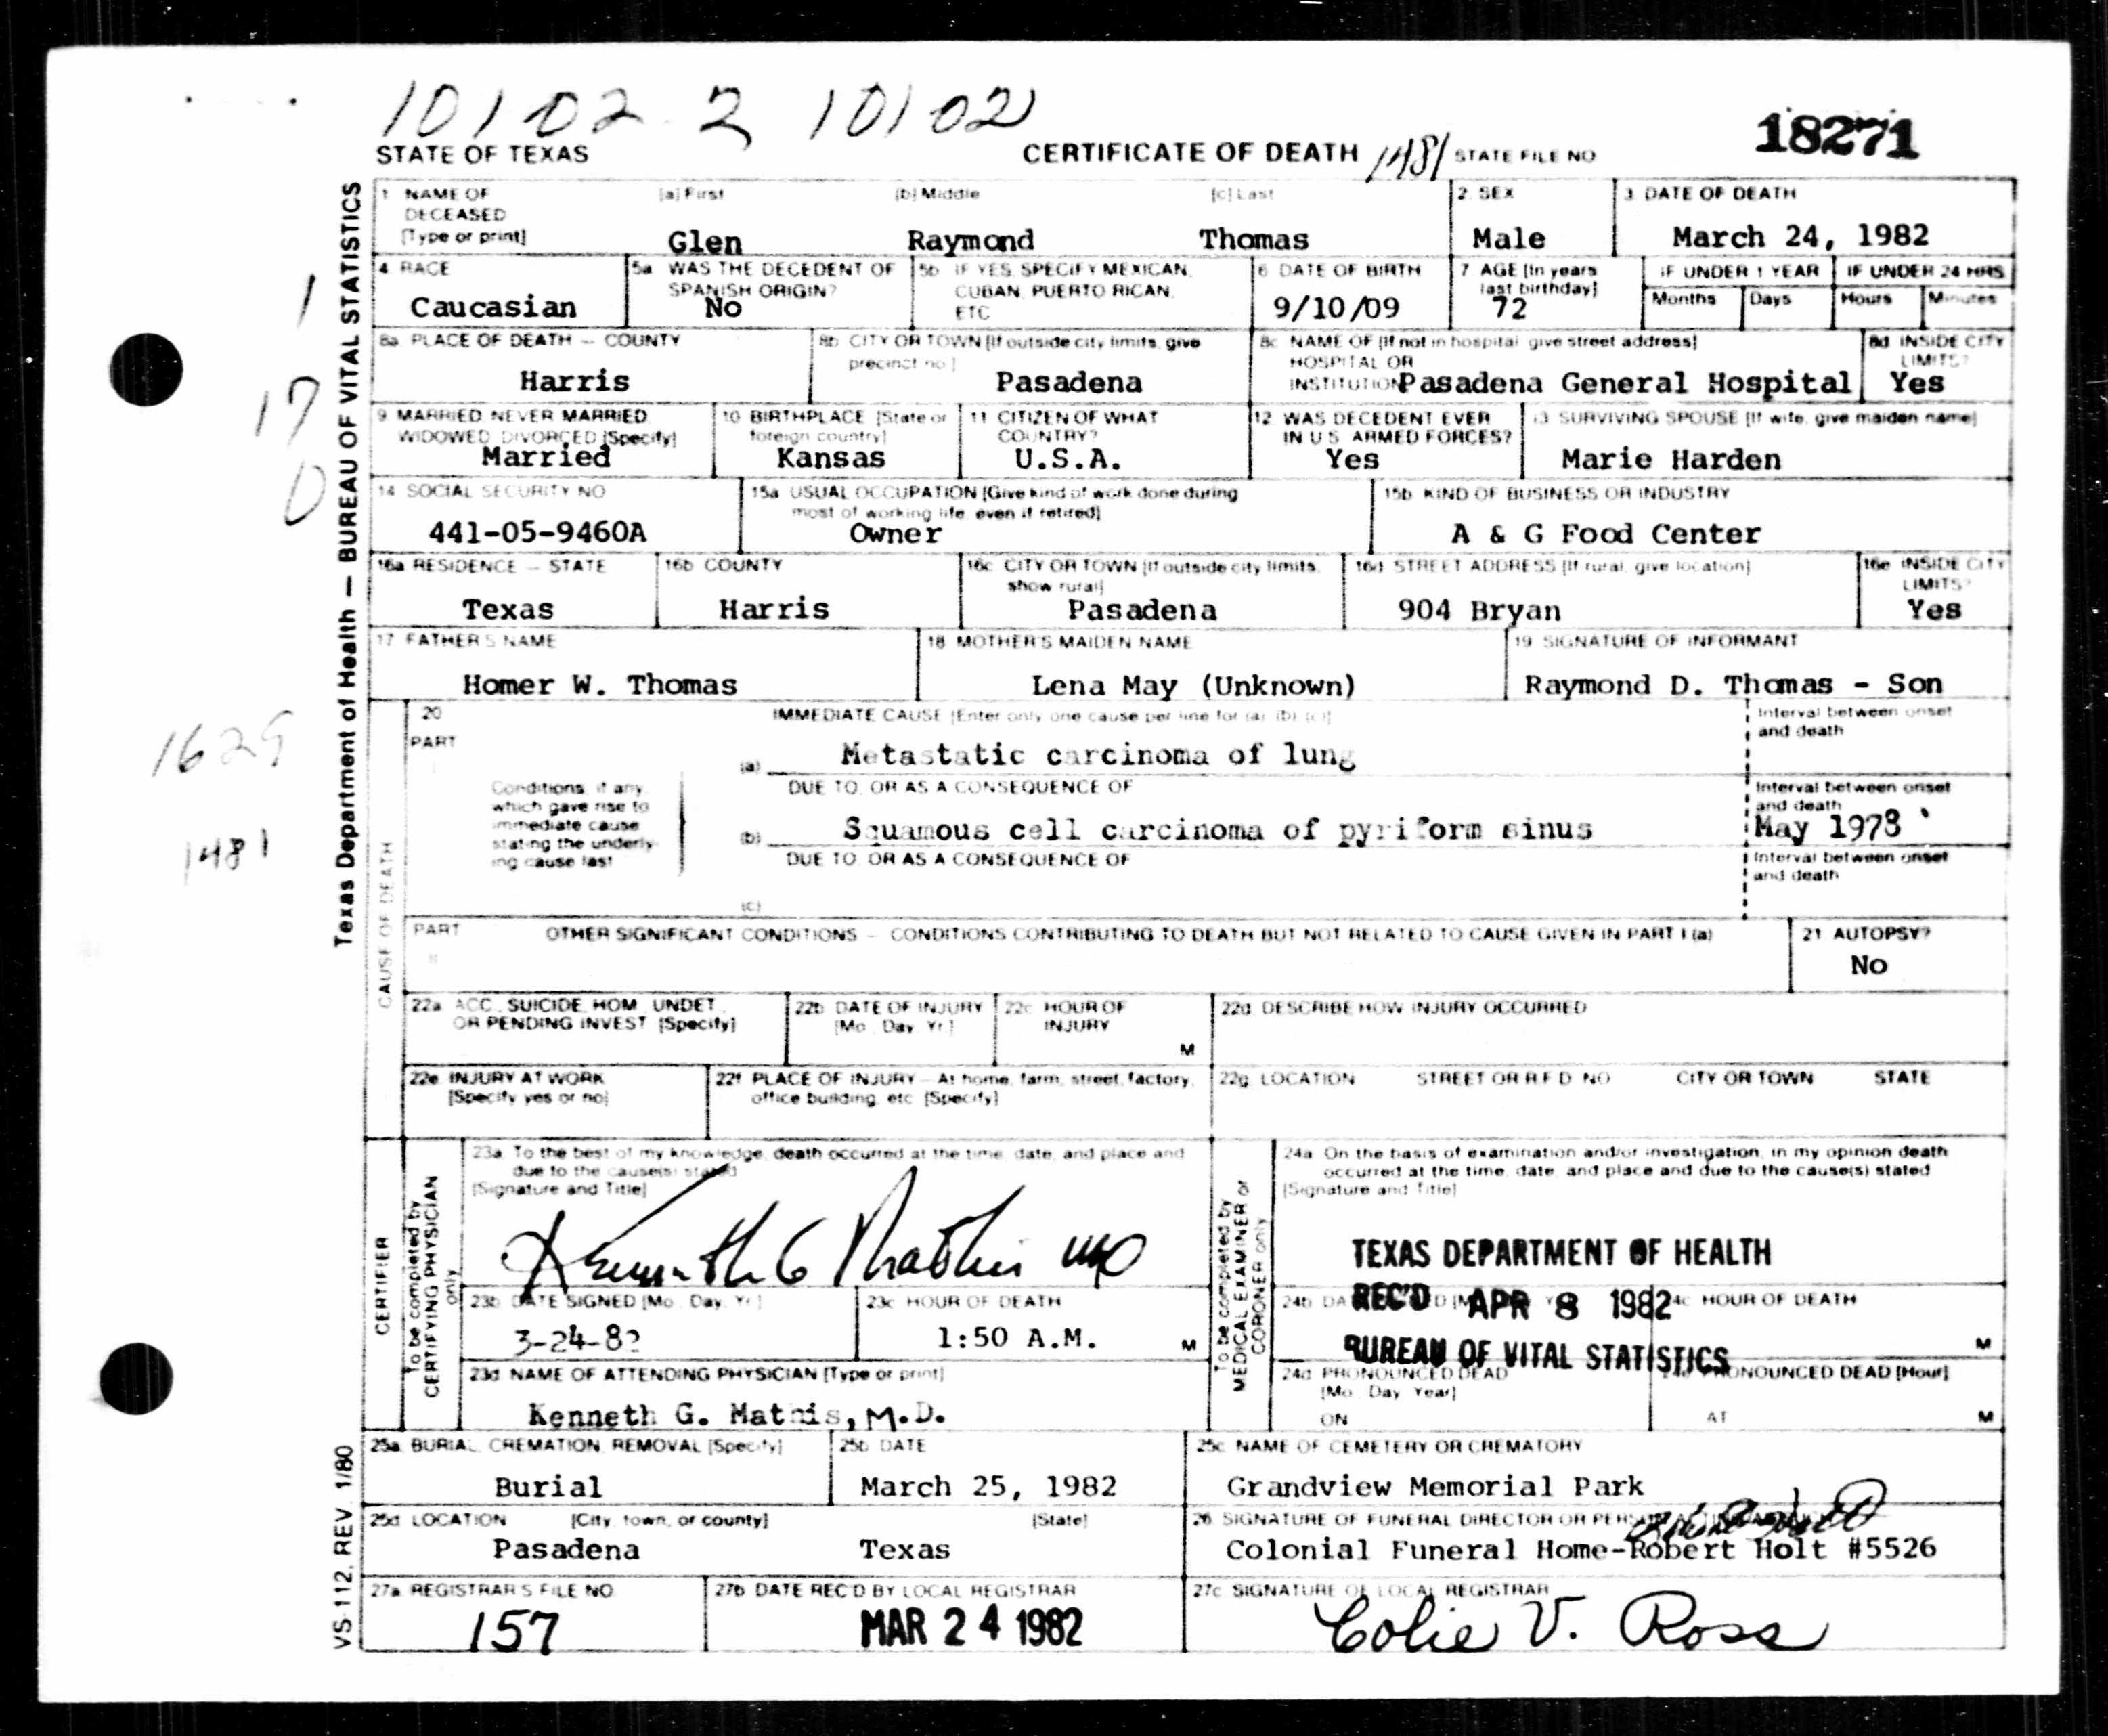 10102 2 10102
STATE OF TEXAS CERTIFICATE OF DEATH 1481 STATE FILE NO 18271
Texas Department of Health — BUREAU OF VITAL STATISTICS
1 NAME OF DECEASED [Type or print] [a] First [b] Middle [c] Last 2. SEX 3 DATE OF DEATH
Glen Raymond Thomas Male March 24, 1982
4 RACE 5a WAS THE DECEDENT OF SPANISH ORIGIN? 5b IF YES, SPECIFY MEXICAN, CUBAN, PUERTO RICAN, ETC 6 DATE OF BIRTH 7 AGE [In years last birthday] IF UNDER 1 YEAR IF UNDER 24 HRS
Months Days Hours Minutes
Caucasian No 9/10/09 72
8a PLACE OF DEATH — COUNTY 8b CITY OR TOWN [If outside city limits, give precinct no.] 8c NAME OF [If not in hospital give street address] HOSPITAL OR INSTITUTION 8d INSIDE CITY LIMITS?
Harris Pasadena Pasadena General Hospital Yes
9 MARRIED, NEVER MARRIED, WIDOWED, DIVORCED [Specify] 10 BIRTHPLACE [State or foreign country] 11 CITIZEN OF WHAT COUNTRY? 12 WAS DECEDENT EVER IN U.S. ARMED FORCES? 13 SURVIVING SPOUSE [If wife, give maiden name]
Married Kansas U.S.A. Yes Marie Harden
14 SOCIAL SECURITY NO 15a USUAL OCCUPATION [Give kind of work done during most of working life, even if retired] 15b KIND OF BUSINESS OR INDUSTRY
441-05-9460A Owner A & G Food Center
16a RESIDENCE — STATE 16b COUNTY 16c CITY OR TOWN [If outside city limits, show rural] 16d STREET ADDRESS [If rural, give location] 16e INSIDE CITY LIMITS?
Texas Harris Pasadena 904 Bryan Yes
17 FATHER'S NAME 18 MOTHER'S MAIDEN NAME 19 SIGNATURE OF INFORMANT
Homer W. Thomas Lena May (Unknown) Raymond D. Thomas - Son
1
17
0
1629
1481
CAUSE OF DEATH
20 PART IMMEDIATE CAUSE [Enter only one cause per line for (a), (b), (c)] Interval between onset and death
(a) Metastatic carcinoma of lung
Conditions, if any, which gave rise to immediate cause stating the underlying cause last
DUE TO, OR AS A CONSEQUENCE OF Interval between onset and death
(b) Squamous cell carcinoma of pyriform sinus May 1978
DUE TO, OR AS A CONSEQUENCE OF Interval between onset and death
(c)
PART II OTHER SIGNIFICANT CONDITIONS — CONDITIONS CONTRIBUTING TO DEATH BUT NOT RELATED TO CAUSE GIVEN IN PART I (a) 21 AUTOPSY?
No
22a ACC., SUICIDE, HOM., UNDET., OR PENDING INVEST [Specify] 22b DATE OF INJURY [Mo., Day, Yr.] 22c HOUR OF INJURY M 22d DESCRIBE HOW INJURY OCCURRED
22e INJURY AT WORK [Specify yes or no] 22f PLACE OF INJURY — At home, farm, street, factory, office building, etc [Specify] 22g LOCATION STREET OR R.F.D. NO CITY OR TOWN STATE
CERTIFIER
To be completed by CERTIFYING PHYSICIAN only
23a To the best of my knowledge, death occurred at the time, date, and place and due to the cause(s) stated
[Signature and Title]
Kenneth G Mathis MD
23b DATE SIGNED [Mo., Day, Yr.] 23c HOUR OF DEATH
3-24-82 1:50 A.M. M
23d NAME OF ATTENDING PHYSICIAN [Type or print]
Kenneth G. Mathis, M.D.
To be completed by MEDICAL EXAMINER or CORONER only
24a On the basis of examination and/or investigation, in my opinion death occurred at the time, date, and place and due to the cause(s) stated
[Signature and Title]
TEXAS DEPARTMENT OF HEALTH
REC'D APR 8 1982
BUREAU OF VITAL STATISTICS
24c HOUR OF DEATH M
24d PRONOUNCED DEAD [Mo., Day, Year] ON PRONOUNCED DEAD [Hour] AT M
25a BURIAL, CREMATION, REMOVAL [Specify] 25b DATE 25c NAME OF CEMETERY OR CREMATORY
Burial March 25, 1982 Grandview Memorial Park
25d LOCATION [City, town, or county] [State] 26 SIGNATURE OF FUNERAL DIRECTOR OR PERSON
Pasadena Texas Colonial Funeral Home-Robert Holt #5526
27a REGISTRAR'S FILE NO 27b DATE REC'D BY LOCAL REGISTRAR 27c SIGNATURE OF LOCAL REGISTRAR
157 MAR 24 1982 Colie V. Ross
VS-112, REV. 1/80